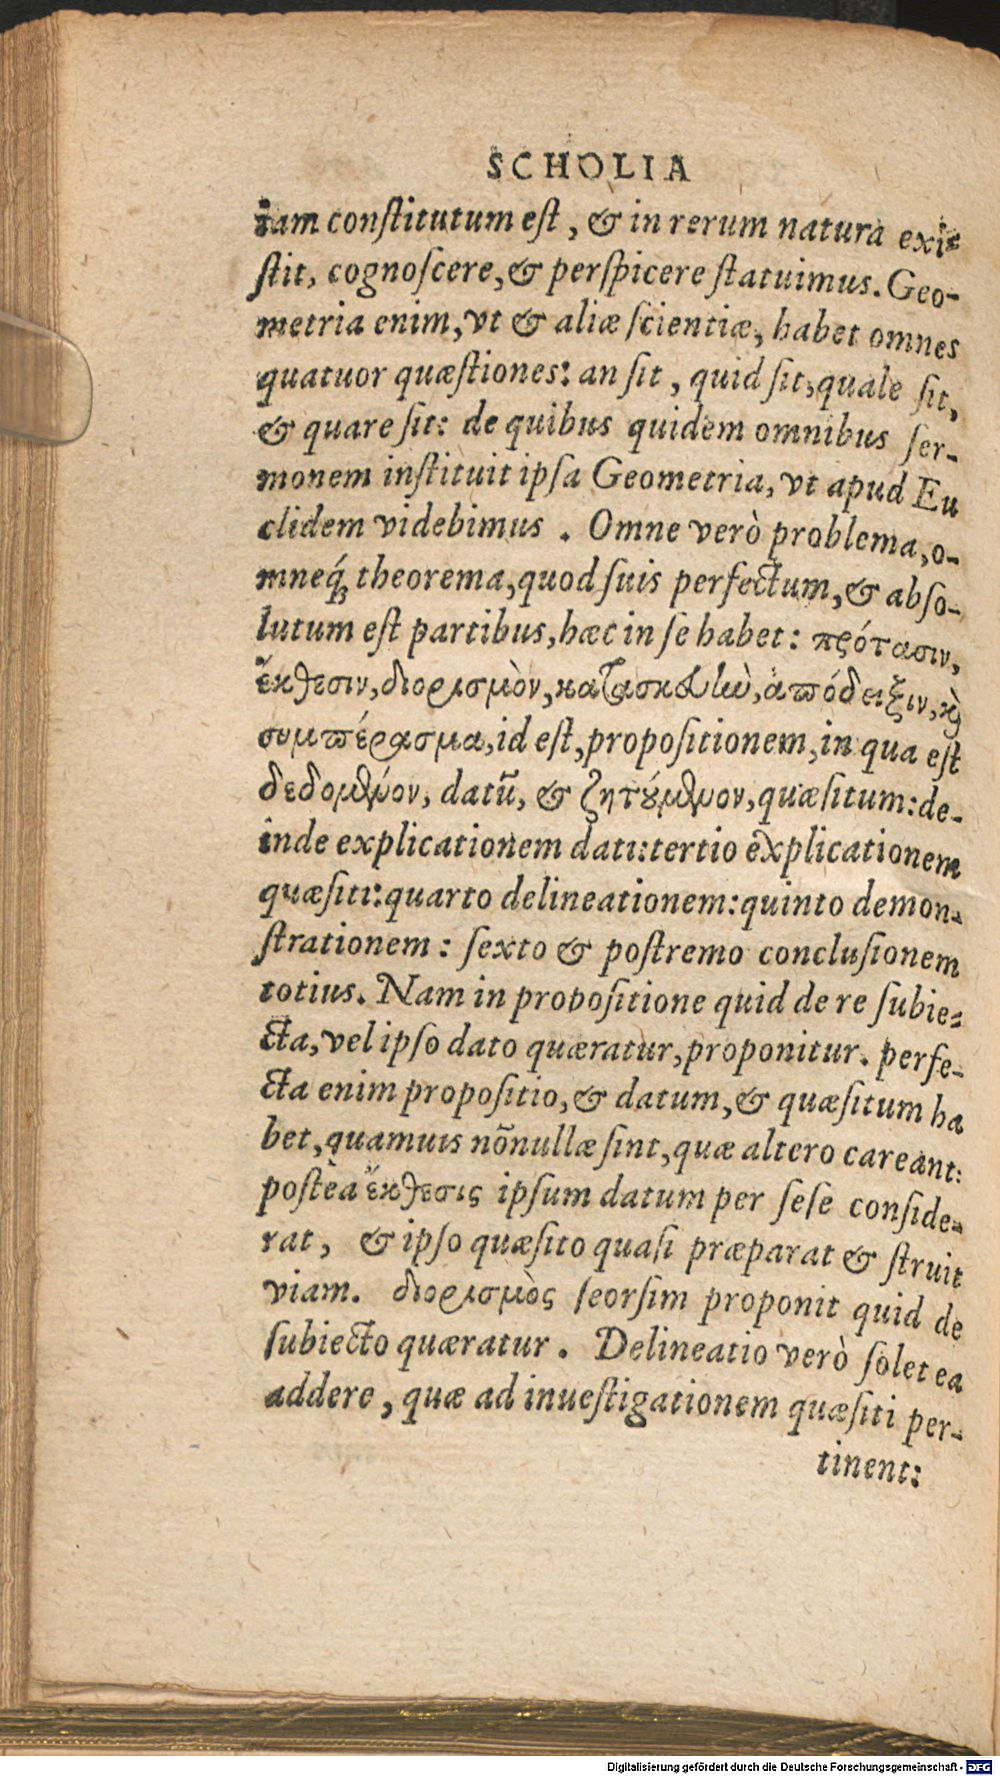 SCHOLIA
iam constitutum est, & in rerum natura exi-
stit, cognoscere, & perspicere statuimus. Geo-
metria enim, vt & aliæ scientiæ, habet omnes
quatuor quæstiones: an sit, quid sit, quale sit,
& quare sit: de quibus quidem omnibus ser-
monem instituit ipsa Geometria, vt apud Eu
clidem videbimus. Omne verò problema, o-
mneq́; theorema, quod suis perfectum, & abso-
lutum est partibus, hæc in se habet: πρότασιν,
ἔκθεσιν, διορισμὸν, κατασκευὼ, ἀπόδειξιν, καὶ
συμπέρασμα, id est, propositionem, in qua est
δεδομένον, datū, & ζητούμενον, quæsitum: de-
inde explicationem dati: tertio explicationem
quæsiti: quarto delineationem: quinto demon-
strationem: sexto & postremo conclusionem
totius. Nam in propositione quid de re subie-
cta, vel ipso dato quæratur, proponitur. perfe-
cta enim propositio, & datum, & quæsitum ha
bet, quamuis nōnullæ sint, quæ altero careant:
postèa ἔκθεσις ipsum datum per sese conside-
rat, & ipso quæsito quasi præparat & struit
viam. διορισμὸς seorsim proponit quid de
subiecto quæratur. Delineatio verò solet ea
addere, quæ ad inuestigationem quæsiti per-
tinent:
Digitalisierung gefördert durch die Deutsche Forschungsgemeinschaft - DFG